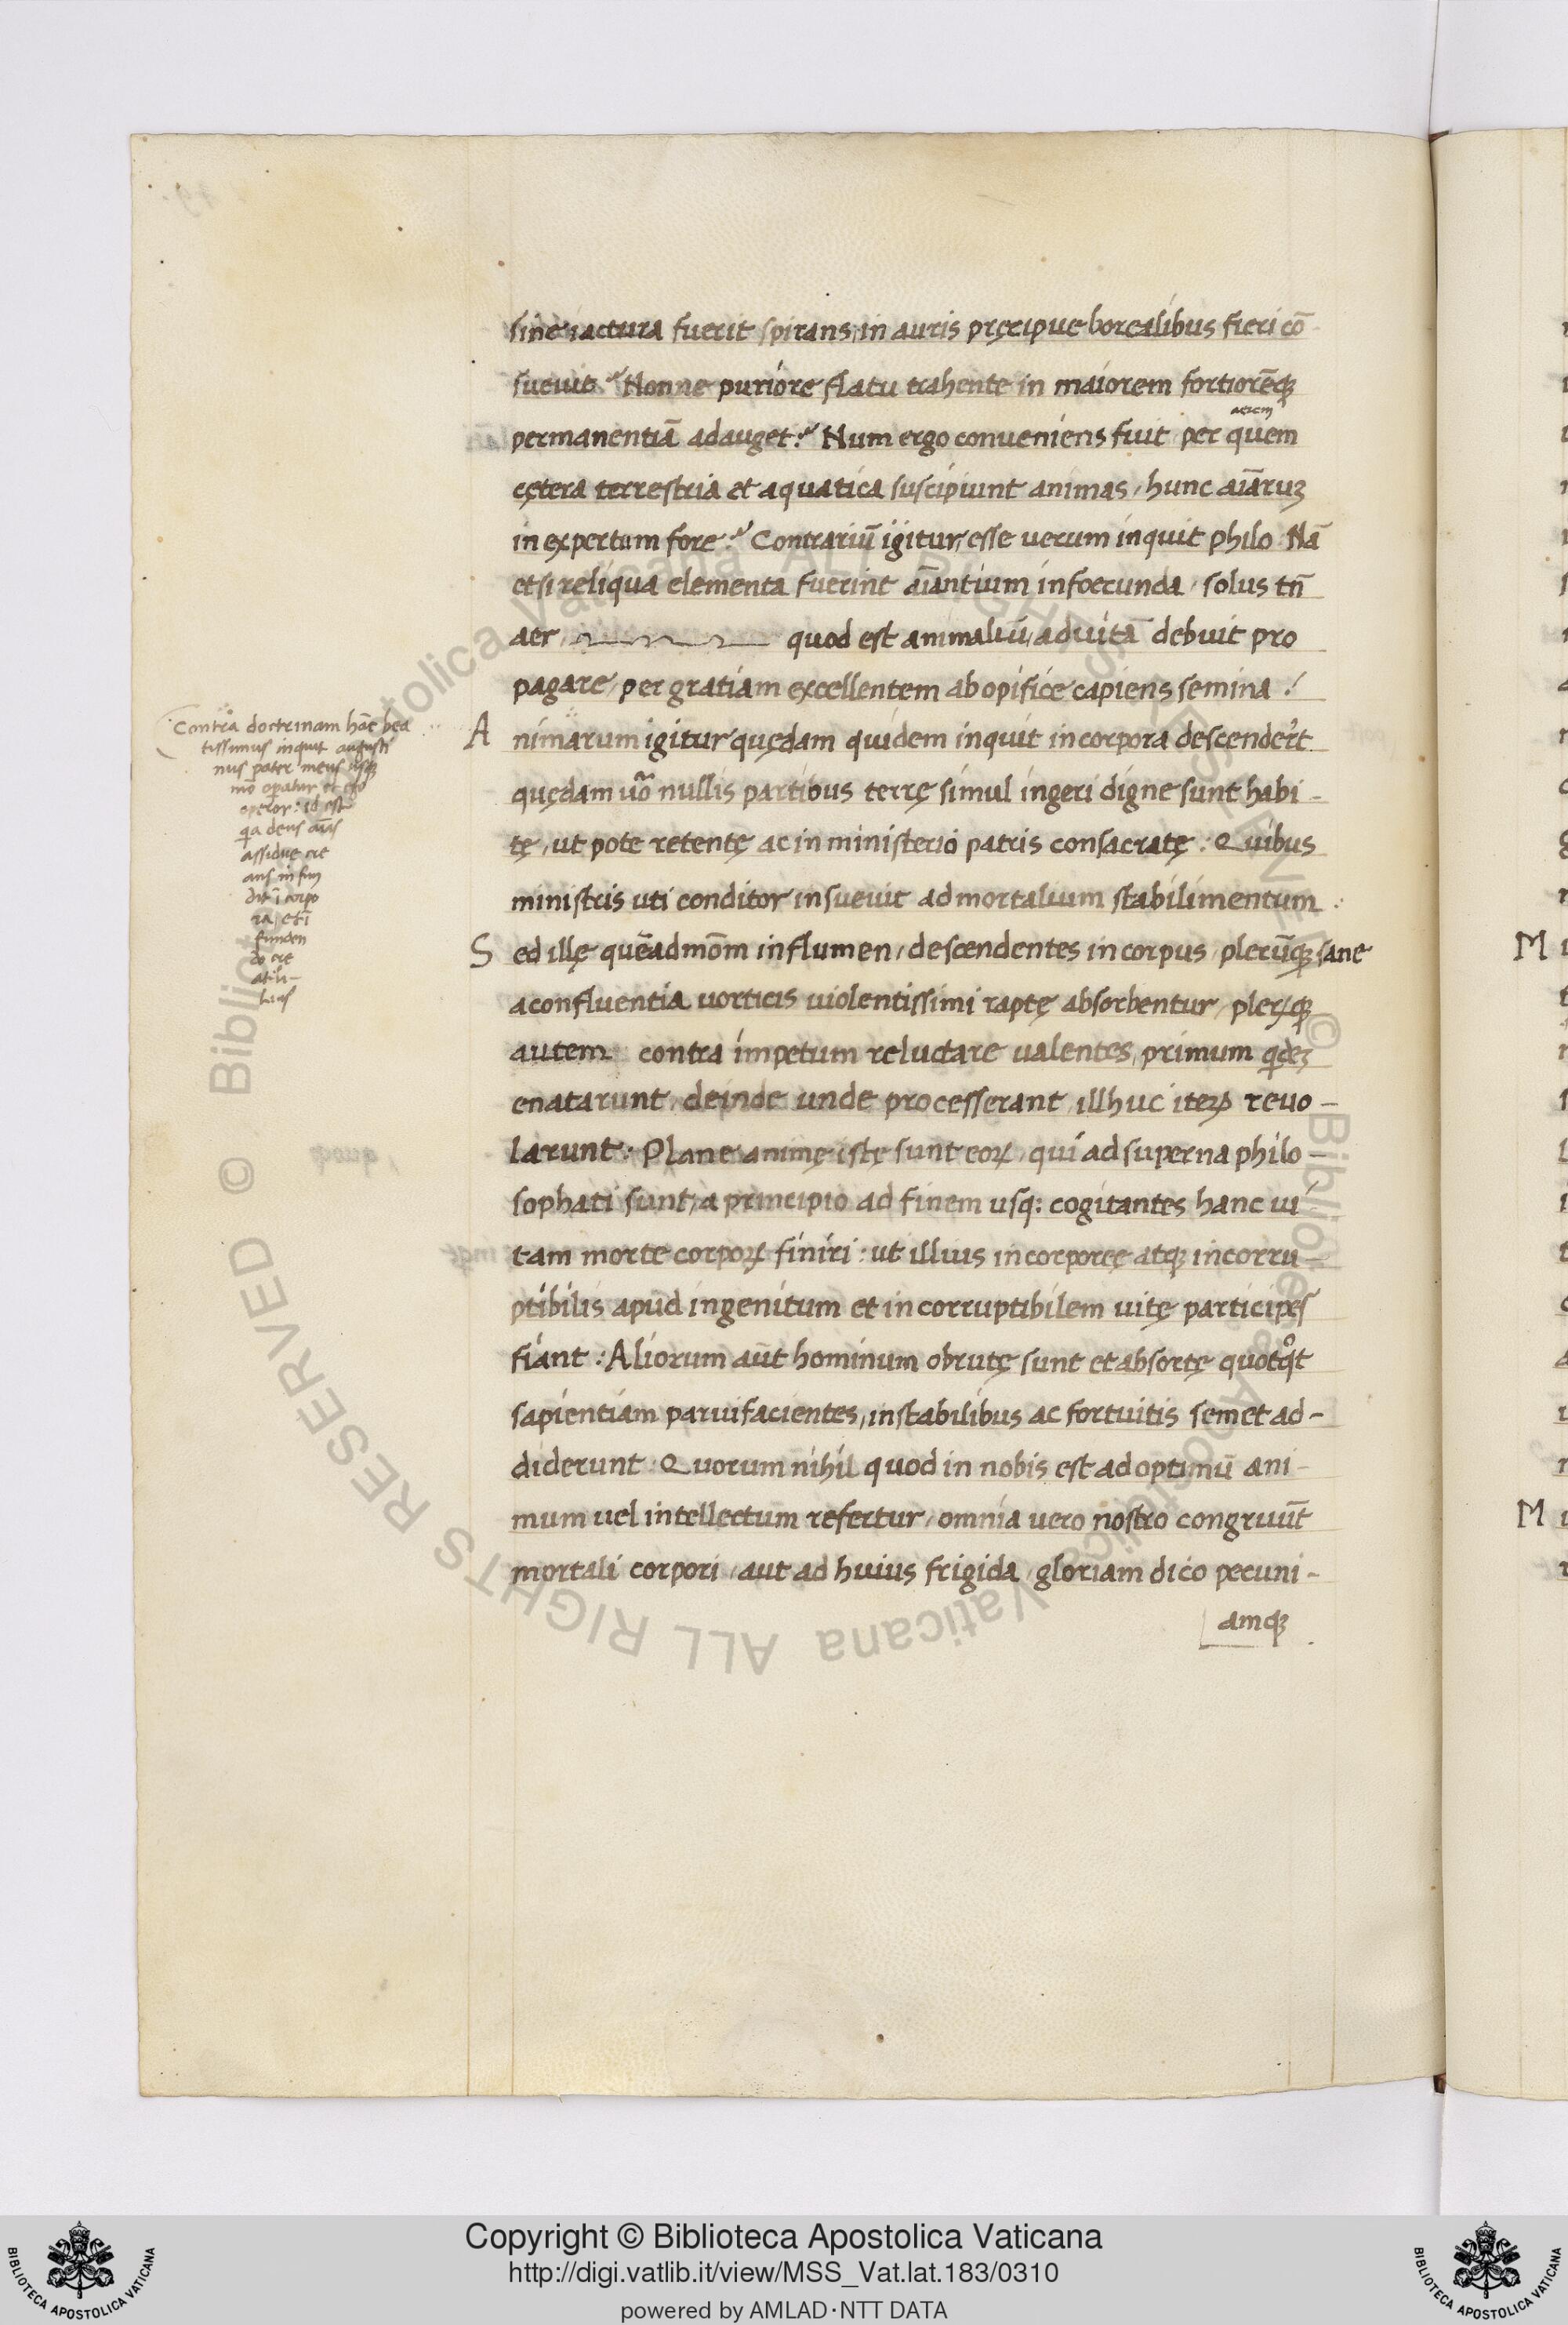 sine iactura fuerit spirans, in auris pręcipue borealibus fieri cō
sueuit? Nonne puriore flatu trahente in maiorem fortiorēq;
aerem
permanentiā adauget? Num ergo conueniens fuit per quem
cętera terrestria et aquatica suscipiunt animas, hunc aīaruꝫ
in expertam fore? Contrariū igitur, esse uerum inquit philo. Nā
etsi reliqua elementa fuerint aīantium infoecunda, solus tn̄
aer, quod est animaliū, ad uitā debuit pro
pagare, per gratiam excellentem ab opifice capiens semina!
A nimarum igitur quędam quidem inquit in corpora descender̄t
quędam uoᷓ nullis partibus terrę simul ingeri digne sunt habi-
tę, ut pote retentę ac in ministerio patris consacratę: Quibus
ministris uti conditor insueuit ad mortalium stabilimentum.
S ed illę quēadmōm in flumen, descendentes in corpus, plerūq; sane
a confluentia uorticis uiolentissimi raptę absorbentur, plerꝫq;
autem contra impetum reluctare ualentes, primum qdeꝫ
enatarunt, deinde unde processerant, illhuc iteꝝ reuo-
larunt: Plane animę istę sunt eoꝝ, qui ad superna philo-
sophati sunt, a principio ad finem usq: cogitantes hanc ui
tam morte corpoꝝ finiri: ut illius incorporeę atq; incorru-
ptibilis apud ingenitum et incorruptibilem uitę participes
fiant: Aliorum aūt hominum obrutę sunt et absortę quotqͦt
sapientiam paruifacientes, instabilibus ac fortuitis semet ad-
diderunt: Quorum nihil quod in nobis est ad optimū ani-
mum uel intellectum refertur, omnia uero nostro congruūt
mortali corpori, aut ad huius frigida, gloriam dico pecuni-
amq;
Contra doctrinam hāc bea
tissimus inquit augusti
nus pater meus usq;
mō operatur et ego
operor: id est
qa deus aīas
assidue cre
ans infun
dit ī corpo
ra, et ī
funden
do cre
at
© Biblioteca Apostolica Vaticana ALL RIGHTS RESERVED
© Biblioteca Apostolica Vaticana ALL RIGHTS RESERVED
M
M
Copyright © Biblioteca Apostolica Vaticana
http://digi.vatlib.it/view/MSS_Vat.lat.183/0310
powered by AMLAD·NTT DATA
BIBLIOTECA APOSTOLICA VATICANA
BIBLIOTECA APOSTOLICA VATICANA